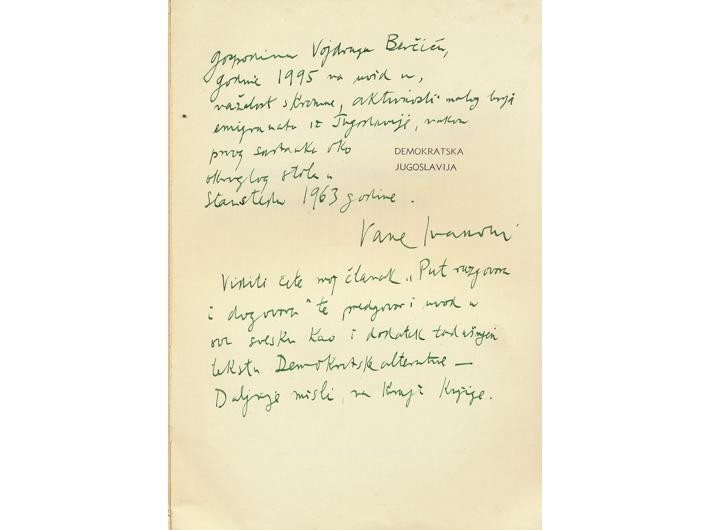 Gospodinu Vojdragu Berčiću,
godine 1995 na uvid u,
nažalost skromne, aktivnosti malog broja
emigranata iz Jugoslavije, nakon
prvog sastanka oko
okruglog stola u
Stanstedu 1963 godine.
DEMOKRATSKA
JUGOSLAVIJA
Vane Ivanović
Viditi ćete moj članak „Put razgovora
i dogovora" te predgovor i uvod u
ovu svesku kao i dodatak tadašnjem
tekstu Demokratske alternative —
Daljnje misli, na kraju knjige.